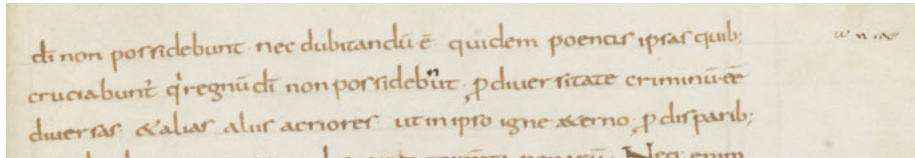 dī non possidebunt nec dubitandū ē quidem poenas ipsas quib;
cruciabunt̄ q̇ regnū dī non possideb̄unt, ꝓ diuersitate criminū ēē
diuersas & alias aliis acriores ut in ipso igne &erno, ꝓ disparib;